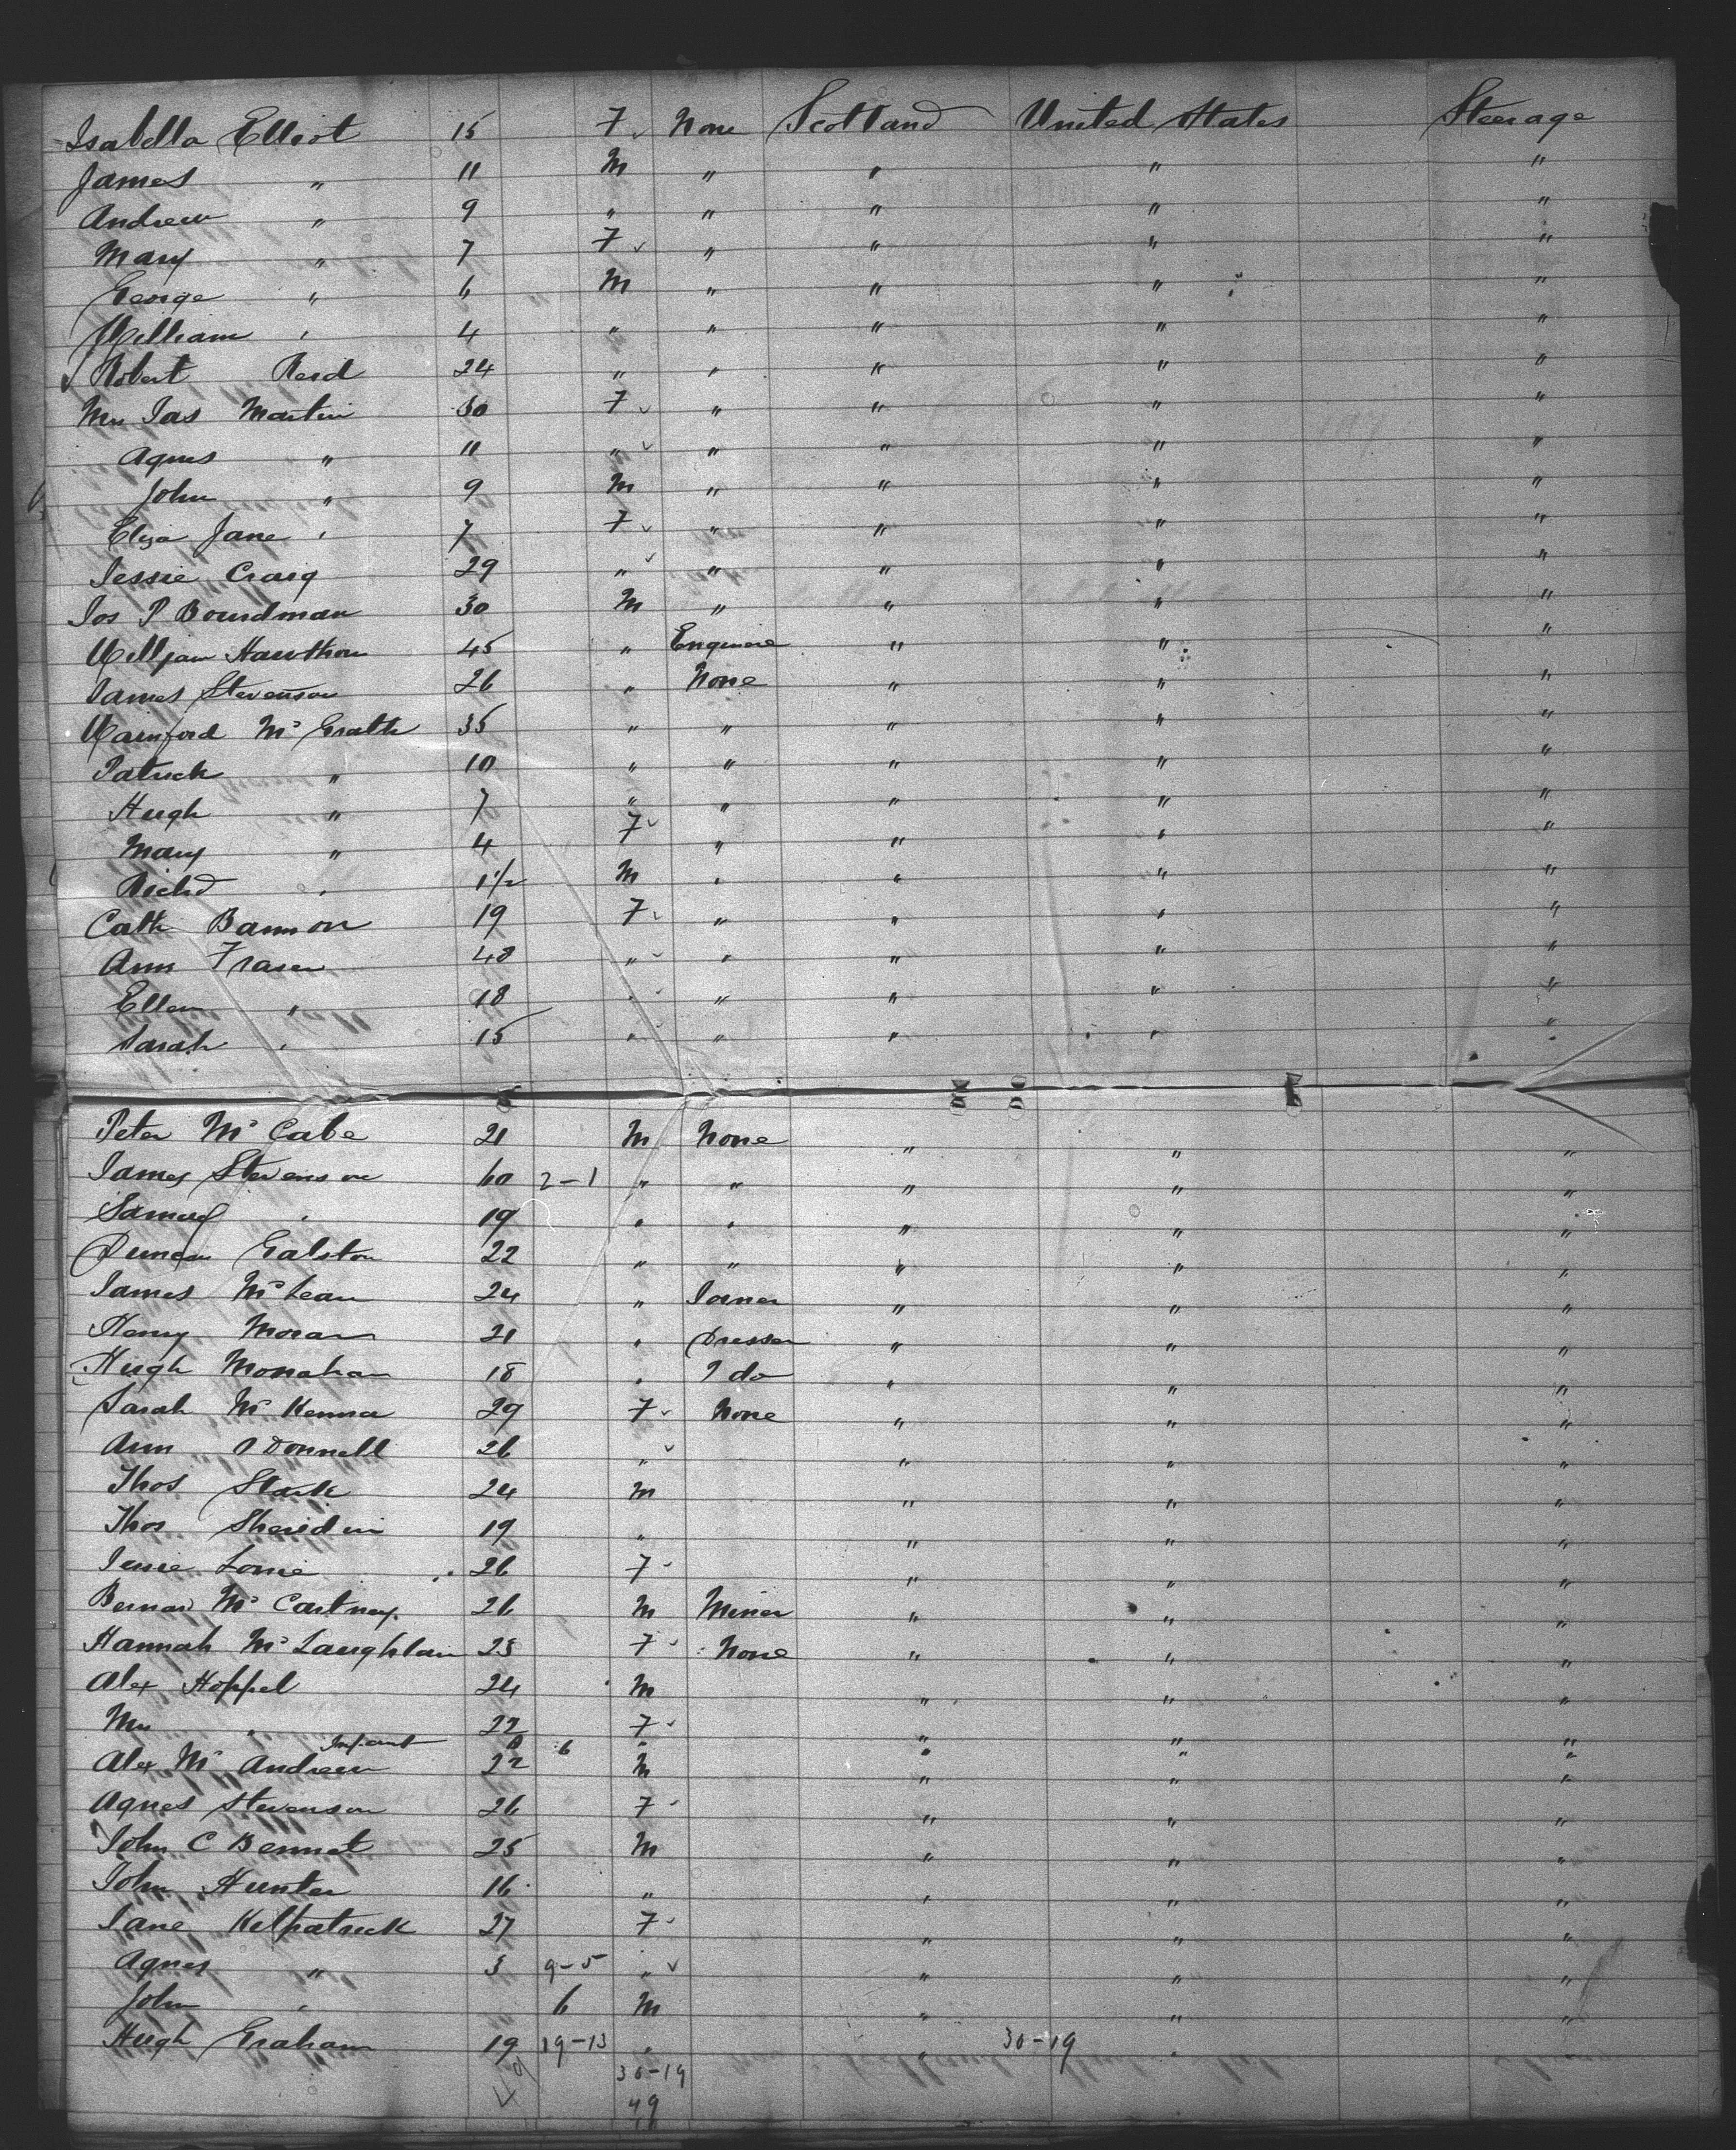 Isabella Elliot 15 F None Scotland United States Steerage
James " 11 M " " " "
Andrew " 9 " " " " "
Mary " 7 F " " " "
George " 6 M " " " "
William " 4 " " " " "
Robert Reid 24 " " " " "
Mrs Jas Martin 30 F " " " "
Agnes " 11 " " " " "
John " 9 M " " " "
Eliza Jane " 7 F " " " "
Jessie Craig 29 " " " " "
Jos P Boardman 30 M " " " "
William Hawthon 45 " " " "
James Stevenson 26 " None " " "
McGrath 35 " " " " "
Patrick " 10 " " " " "
Hugh " 7 " " " " "
Mary " 4 F " " " "
Richd " 1 1/2 M " " " "
Cath Bannon 19 F " " " "
Ann Fraser 48 " " " " "
Ellen " 18 " " " " "
Sarah " 15 " " " " "
Peter McCabe 21 M None " " "
James Stevenson 60 2-1 " " " " "
Samuel " 19 " " " " "
Duncan Galston 22 " " " " "
James McLean 24 " Joiner " " "
Henry Moran 21 " Dresser " " "
Hugh Monahan 18 " do " " "
Sarah McKenna 29 F None " " "
Ann O Donnell 26 " " " "
Thos Stark 24 M " " "
Thos Sheridin 19 " " " "
Lorrie 26 F " " "
Bernard McCartney 26 M Miner " " "
Hannah McLaughlan 23 F None " " "
Alex Hoppel 24 M " " "
Mrs " 22 F " " "
Infant 0 6 " " " "
Alex McAndrew 22 M " " "
Agnes Stevenson 26 F " " "
John C Bennet 25 M " " "
John Hunter 16 " " " "
Jane Kilpatrick 27 F " " "
Agnes " 3 9-5 " " " "
John " 6 M " " "
Hugh Graham 19 19-13 " " 30-19 "
49 30-19
49